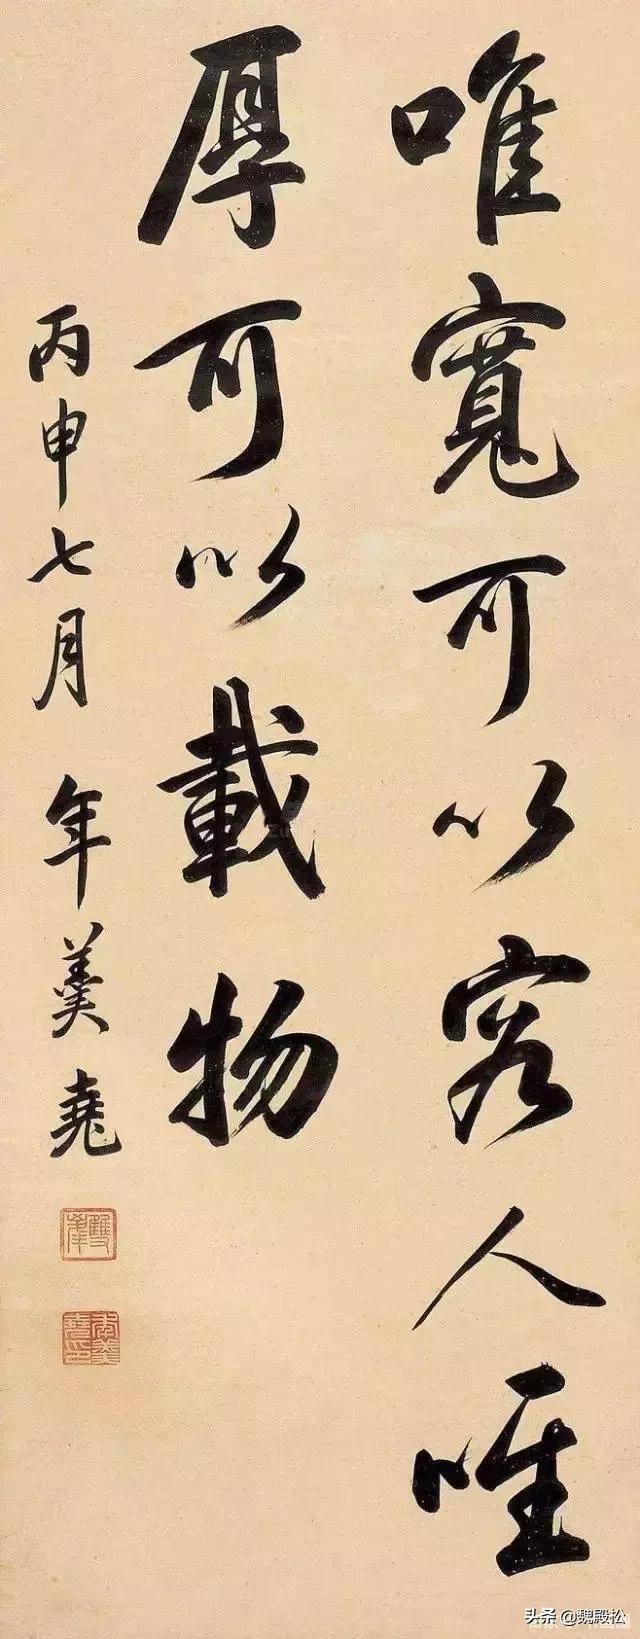 唯寬可以容人唯
厚可以載物
丙申七月 年羹堯
雙峯
年羹堯印
头条 @魏殿松